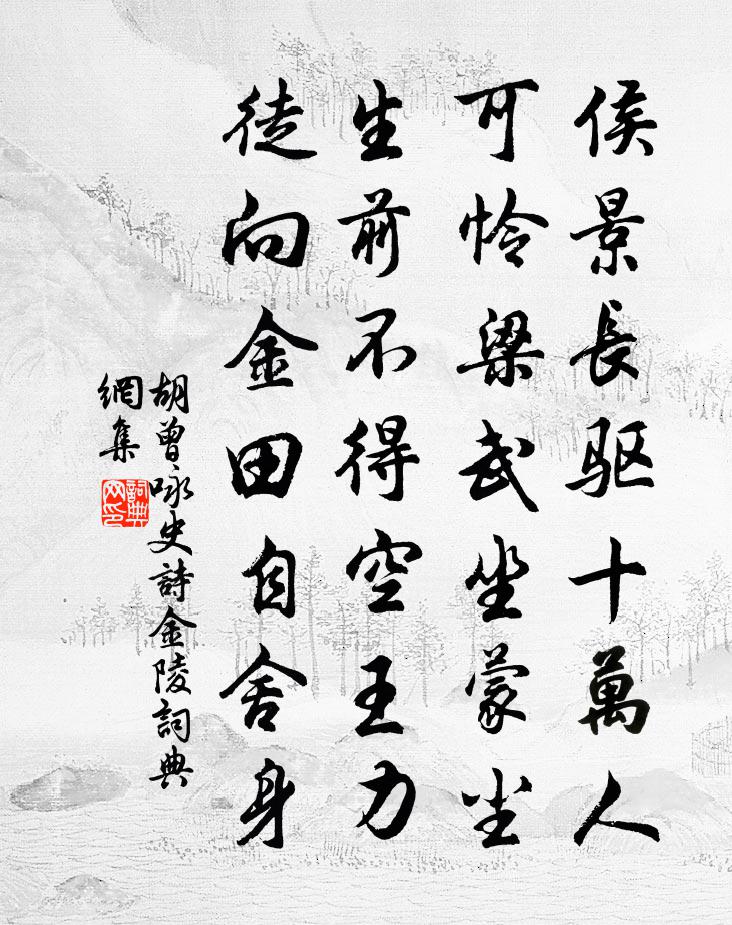 侯景長驱十萬人
可怜梁武坐蒙尘
生前不得空王力
徒向金田自舍身
胡曾咏史詩金陵詞典
網集
詞典
网印